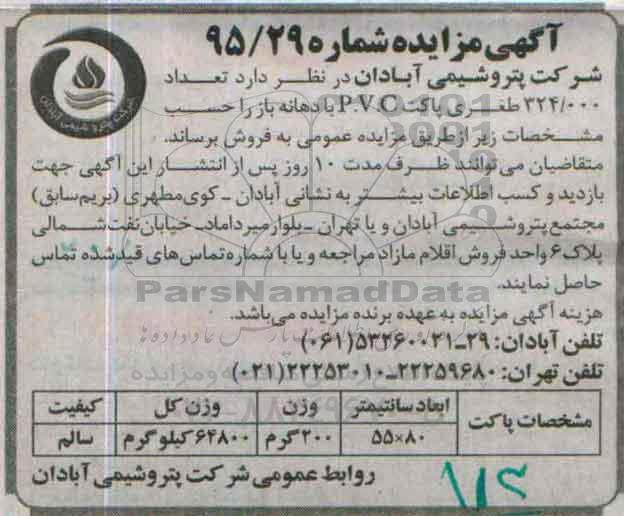 آگهی مزایده شماره ۹۵/۲۹
شرکت پتروشیمی آبادان در نظر دارد تعداد
۳۲۴/۰۰۰ طغری پاکت P.V.C با دهانه باز را حسب
مشخصات زیر از طریق مزایده عمومی به فروش برساند.
متقاضیان می‌توانند ظرف مدت ۱۰ روز پس از انتشار این آگهی جهت
بازدید و کسب اطلاعات بیشتر به نشانی آبادان ـ کوی مطهری (بریم سابق)
مجتمع پتروشیمی آبادان و یا تهران ـ بلوار میرداماد ـ خیابان نفت شمالی
پلاک ۶ واحد فروش اقلام مازاد مراجعه و یا با شماره تماس‌های قید شده تماس
حاصل نمایند.
هزینه آگهی مزایده به عهده برنده مزایده می‌باشد.
تلفن آبادان: ۲۹ـ۵۳۲۶۰۰۲۱ (۰۶۱)
تلفن تهران: ۲۲۲۵۹۶۸۰ـ۲۲۲۵۳۰۱۰ (۰۲۱)
مشخصات پاکت ابعاد سانتیمتر وزن وزن کل کیفیت
۵۵×۸۰ ۲۰۰ گرم ۶۴۸۰۰ کیلوگرم سالم
روابط عمومی شرکت پتروشیمی آبادان
شرکت پتروشیمی آبادان
ParsNamadData